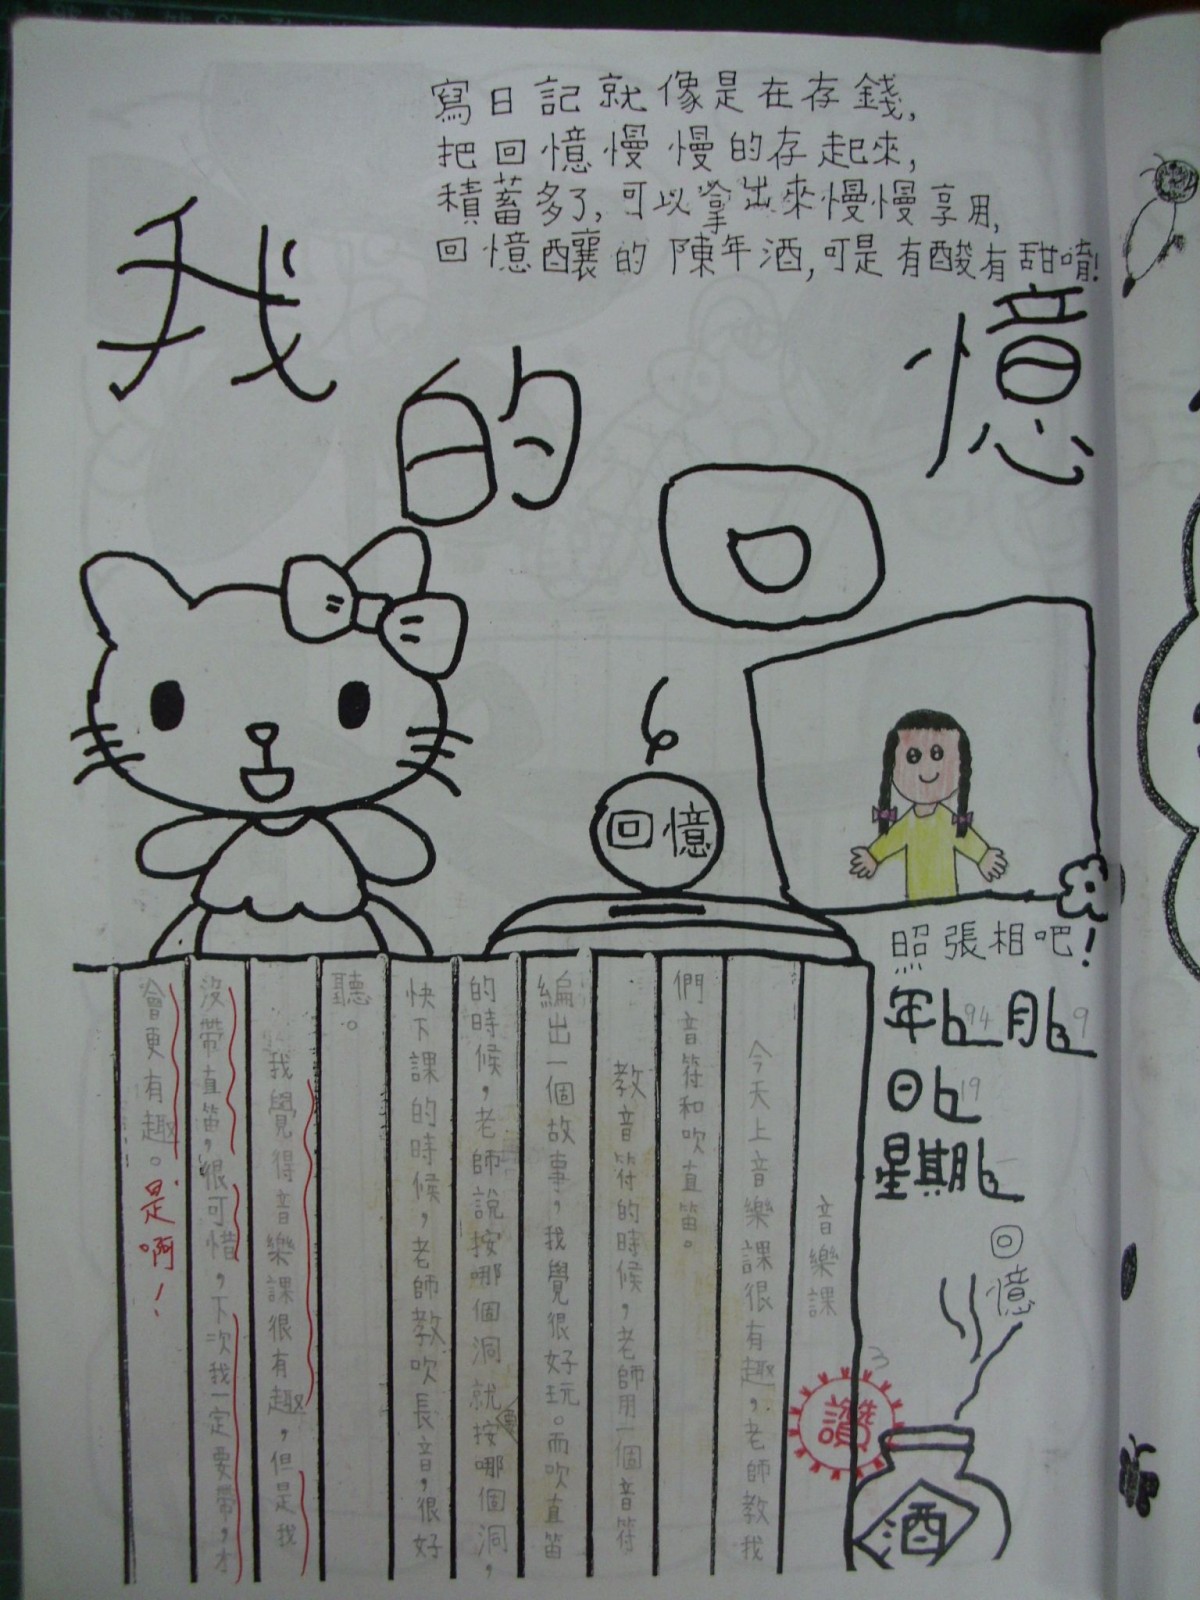 寫日記就像是在存錢,
把回憶慢慢的存起來,
積蓄多了,可以拿出來慢慢享用,
回憶釀的陳年酒,可是有酸有甜唷!
我的回憶
回憶
照張相吧!
年94月9
日19
星期一
回憶
酒
讚
3
音樂課
今天上音樂課很有趣,老師教我
們音符和吹直笛。
教音符的時候,老師用一個音符
編出一個故事,我覺很好玩。而吹直笛
的時候,老師說按哪個洞就按哪個洞,
快下課的時候,老師教吹長音,很好
聽。
我覺得音樂課很有趣,但是我
沒帶直笛,很可惜,下次我一定要帶,才
會更有趣。是啊!